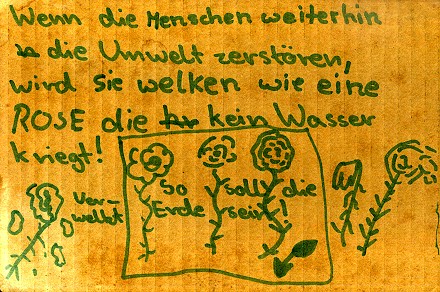 Wenn die Menschen weiterhin
die Umwelt zerstören,
wird sie welken wie eine
ROSE die kein Wasser
kriegt!
Ver-
welkt
So soll die
Erde sein!